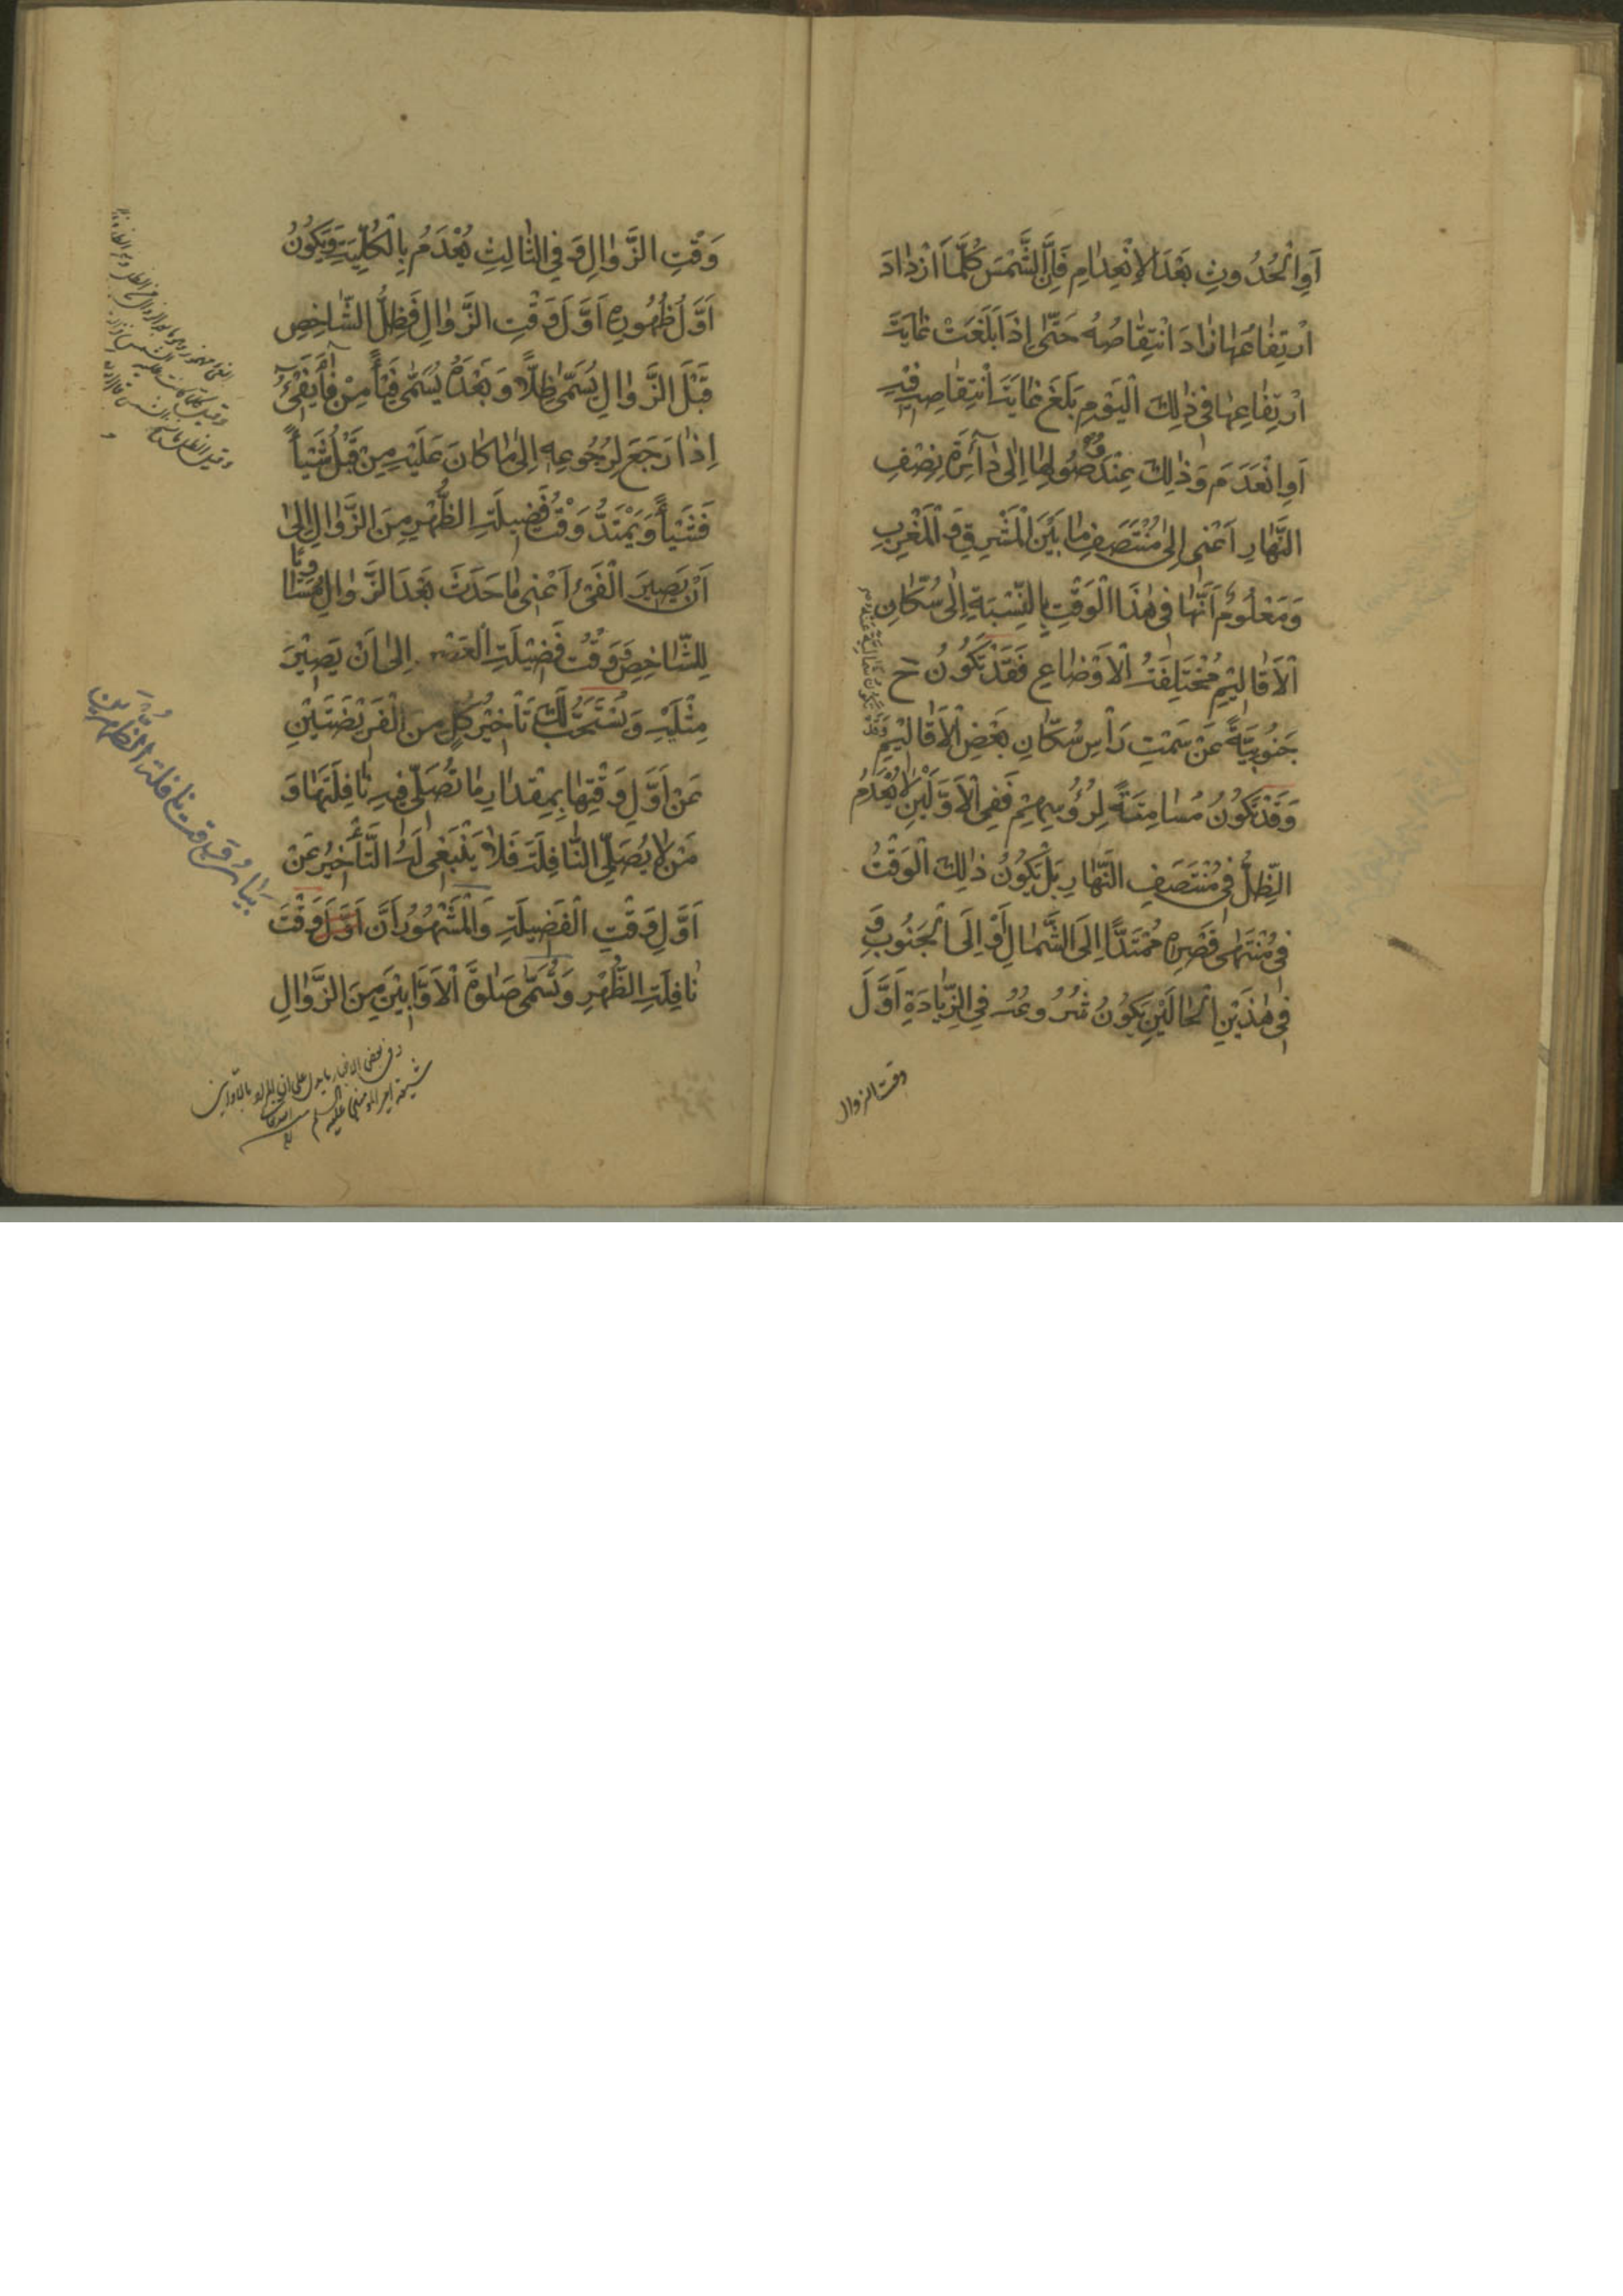 أَوِ الْحُدُوثِ بَعْدَ الْاِنْعِدَامِ فَإِنَّ الشَّمْسَ كُلَّمَا ازْدَادَ
ارْتِفَاعُهَا زَادَ انْتِقَاصُهُ حَتّٰى إِذَا بَلَغَتْ غَايَةَ
ارْتِفَاعِهَا فِي ذٰلِكَ الْيَوْمِ بَلَغَ غَايَةَ انْتِقَاصِهِ فِيهِ
أَوِ انْعَدَمَ وَذٰلِكَ عِنْدَ وُصُولِهَا إِلٰى دَائِرَةِ نِصْفِ
النَّهَارِ أَعْنِي إِلٰى مُنْتَصَفِ مَا بَيْنَ الْمَشْرِقِ وَالْمَغْرِبِ
وَمَعْلُومٌ أَنَّهَا فِي هٰذَا الْوَقْتِ بِالنِّسْبَةِ إِلٰى سُكَّانِ
الْأَقَالِيمِ مُخْتَلِفَةُ الْأَوْضَاعِ فَقَدْ تَكُونُ ح
جَنُوبِيَّةً عَنْ سَمْتِ رَأْسِ سُكَّانِ بَعْضِ الْأَقَالِيمِ
وَقَدْ تَكُونُ شَمَالِيَّةً عَنْهُ
وَقَدْ تَكُونُ مُسَامِتَةً لِرُؤُسِهِمْ فَفِي الْأَوَّلَيْنِ لَا يُعْدَمُ
الظِّلُّ فِي مُنْتَصَفِ النَّهَارِ بَلْ يَكُونُ ذٰلِكَ الْوَقْتُ
فِي مُنْتَهٰى قِصَرِهِ مُمْتَدًّا إِلَى الشَّمَالِ أَوْ إِلَى الْجَنُوبِ وَ
فِي هٰذَيْنِ الْحَالَيْنِ يَكُونُ شُرُوعُهُ فِي الزِّيَادَةِ أَوَّلَ
وقت الزوال
وَقْتِ الزَّوَالِ وَفِي الثَّالِثِ يُعْدَمُ بِالْكُلِّيَّةِ وَيَكُونُ
أَوَّلُ ظُهُورِهِ أَوَّلَ وَقْتِ الزَّوَالِ فَظِلُّ الشَّاخِصِ
قَبْلَ الزَّوَالِ يُسَمّٰى ظِلًّا وَبَعْدَهُ يُسَمّٰى فَيْأً مِنْ فَاءَ يَفِيْءُ
إِذَا رَجَعَ لِرُجُوعِهِ إِلٰى مَا كَانَ عَلَيْهِ مِنْ قَبْلُ شَيْأً
فَشَيْأً وَيَمْتَدُّ وَقْتُ فَضِيلَةِ الظُّهْرِ مِنَ الزَّوَالِ إِلٰى
أَنْ يَصِيرَ الْفَيْءُ أَعْنِي مَا حَدَثَ بَعْدَ الزَّوَالِ مُسَاوِيًا
لِلشَّاخِصِ وَوَقْتُ فَضِيلَةِ الْعَصْرِ إِلٰى أَنْ يَصِيرَ
مِثْلَيْهِ وَيُسْتَحَبُّ لَكَ تَأْخِيرُ كُلٍّ مِنَ الْفَرِيضَتَيْنِ
عَنْ أَوَّلِ وَقْتِهَا بِمِقْدَارِ مَا تُصَلّٰى فِيهِ نَافِلَتُهَا وَ
مَنْ لَا يُصَلِّي النَّافِلَةَ فَلَا يَنْبَغِي لَهُ التَّأْخِيرُ عَنْ
أَوَّلِ وَقْتِ الْفَضِيلَةِ وَالْمَشْهُورُ أَنَّ أَوَّلَ وَقْتِ
نَافِلَةِ الظُّهْرِ وَتُسَمّٰى صَلٰوةَ الْأَوَّابِينَ مِنَ الزَّوَالِ
بيان وقت نافلة الظهرين
وفي بعض الأخبار ما يدل على أن المراد بالأوابين
شيعة أمير المؤمنين عليه السلم